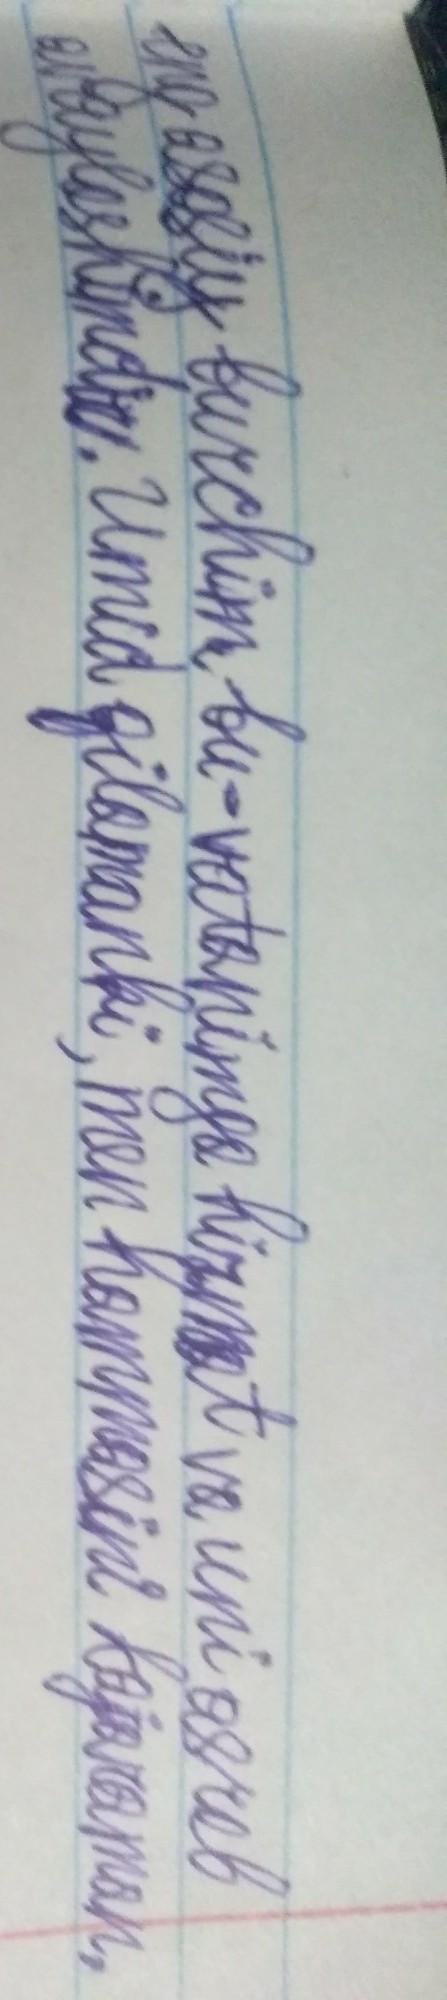 eng asosiy burchim bu-vatanimga hizmat va uni asrab
avaylashimdir. Umid qilamanki, men hammasini bajaraman,